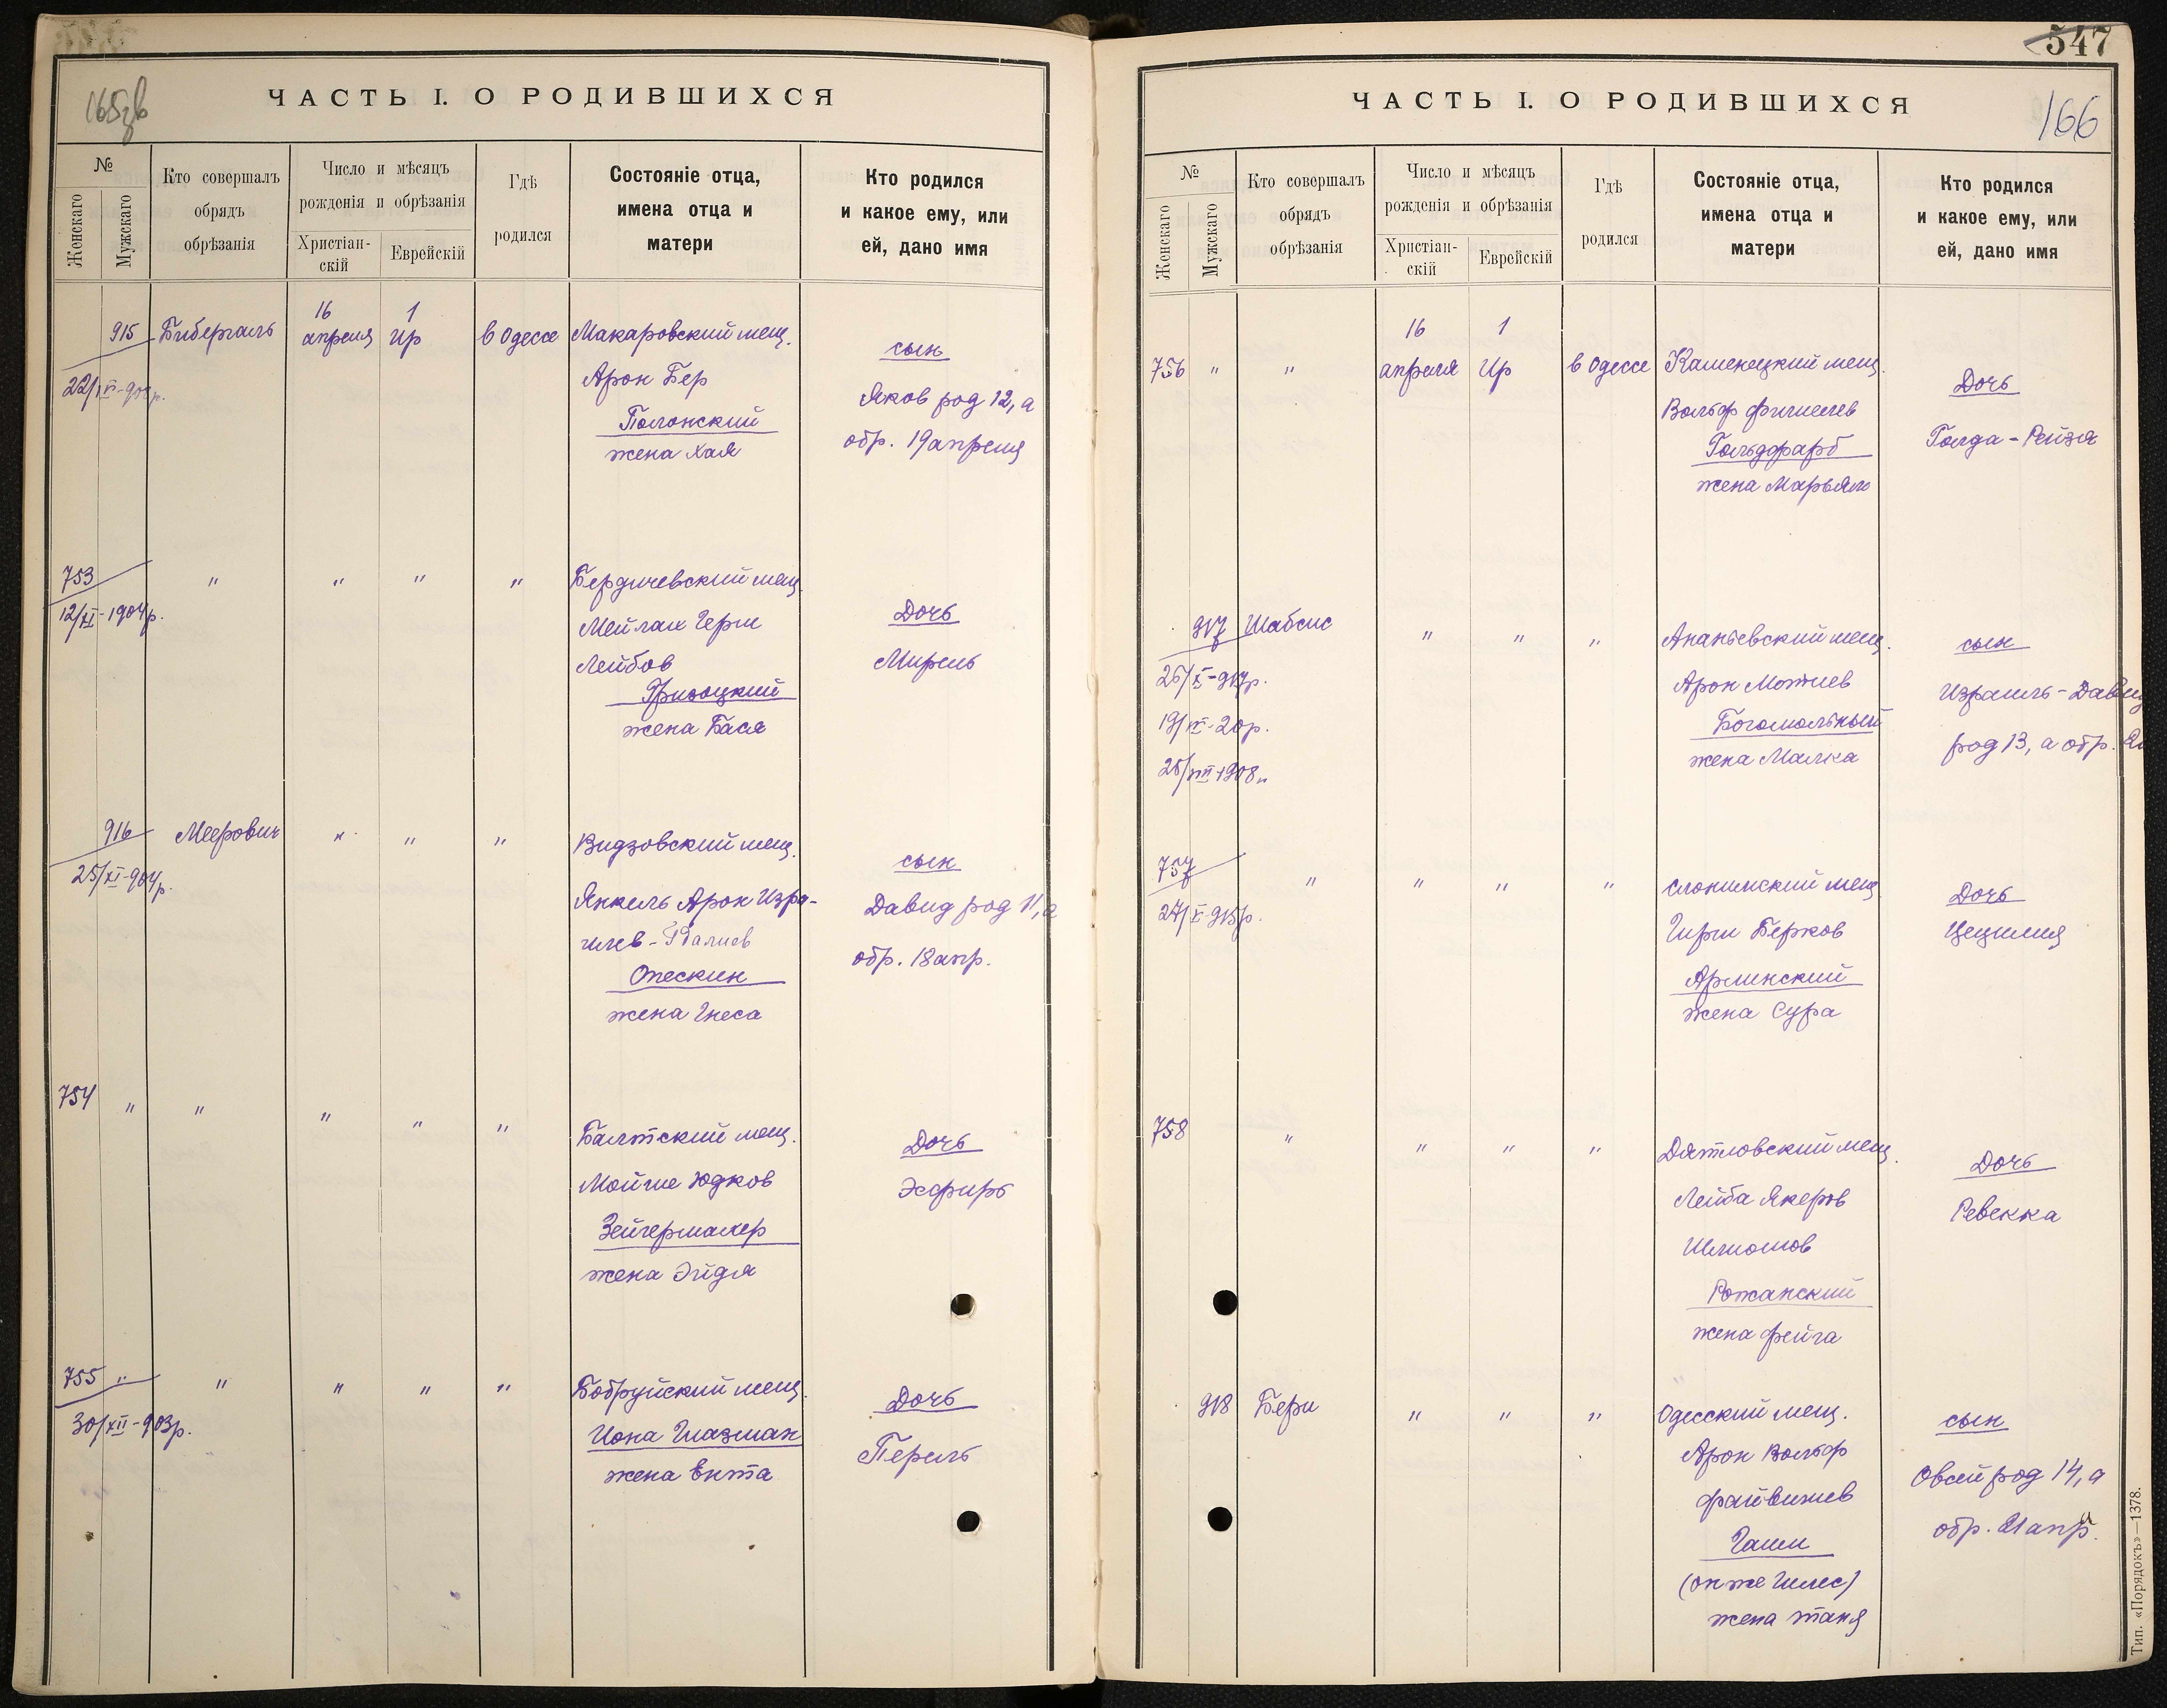 165зв
ЧАСТЬ I. О РОДИВШИХСЯ
№
Женскаго
Мужскаго
Кто совершалъ
обрядъ
обрѣзанія
Число и мѣсяцъ
рожденія и обрѣзанія
Христіан-
скій
Еврейскій
Гдѣ
родился
Состояніе отца,
имена отца и
матери
Кто родился
и какое ему, или
ей, дано имя
915 Бибергаль 16 апреля 1 Ир в Одессе Макаровский мещ.
Арон Бер
Полонский
жена Хая
сын
Яков род 12, а
обр. 19 апреля
753 " " " " Бердичевский мещ.
12/XI-1904р.
Мейлах Герш
Лейбов
жена Бася
Дочь
Мирель
916 Меерович " " " Видзовский мещ.
25/XI-904р.
Янкель Арон Изра-
илев-Гдалиев
Опескин
жена Гнеса
сын
Давид род 11, а
обр. 18 апр.
754 " " " " " Балтский мещ.
Мойше Юдков
Зейгермахер
жена Эйдя
Дочь
Эсфирь
755 " " " " " Бобруйский мещ.
30/XII-903р.
Иона Глазман
жена Ента
Дочь
Перель
547
166
ЧАСТЬ I. О РОДИВШИХСЯ
№
Женскаго
Мужскаго
Кто совершалъ
обрядъ
обрѣзанія
Число и мѣсяцъ
рожденія и обрѣзанія
Христіан-
скій
Еврейскій
Гдѣ
родился
Состояніе отца,
имена отца и
матери
Кто родился
и какое ему, или
ей, дано имя
756 " " 16 апреля 1 Ир в Одессе Каменецкий мещ.
Вольф Фишелев
Гольдфарб
жена Марьям
Дочь
Голда-Рейзя
917 Шабсис " " " Ананьевский мещ.
Арон Мотиев
Богомольный
жена Малка
сын
Израиль-Давид
род 13, а обр.
757 " " " " Слонимский мещ.
27/X-915р.
Гирш Берков
Арлинский
жена Сура
Дочь
Цецилия
758 " " " " Дятловский мещ.
Лейба Якеров
Шлиомов
Рожанский
жена Фейга
Дочь
Ревекка
918 Берш " " " Одесский мещ.
Арон Вольф
Файвишев
Гаши
(он же Гилес)
жена Таня
сын
Овсей род 14, а
обр. 21 апр.
Тип. «Порядокъ»—1378.